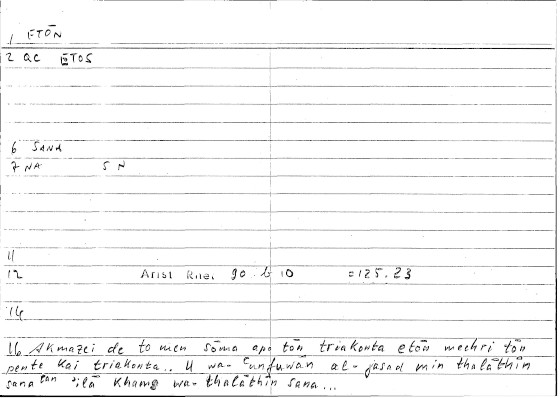 1 ETŌN
2 QC ETOS
6 SANA
7 NA SN
11
12 Arist Rhet 90 b 10 =125.23
14
16 Akmazei de to men sōma apo tōn triakonta etōn mechri tōn
pente kai triakonta.. U wa-ʿunfuwān al-jasad min thalāthīn
sanatan ʾilā khams wa-thalāthīn sana...